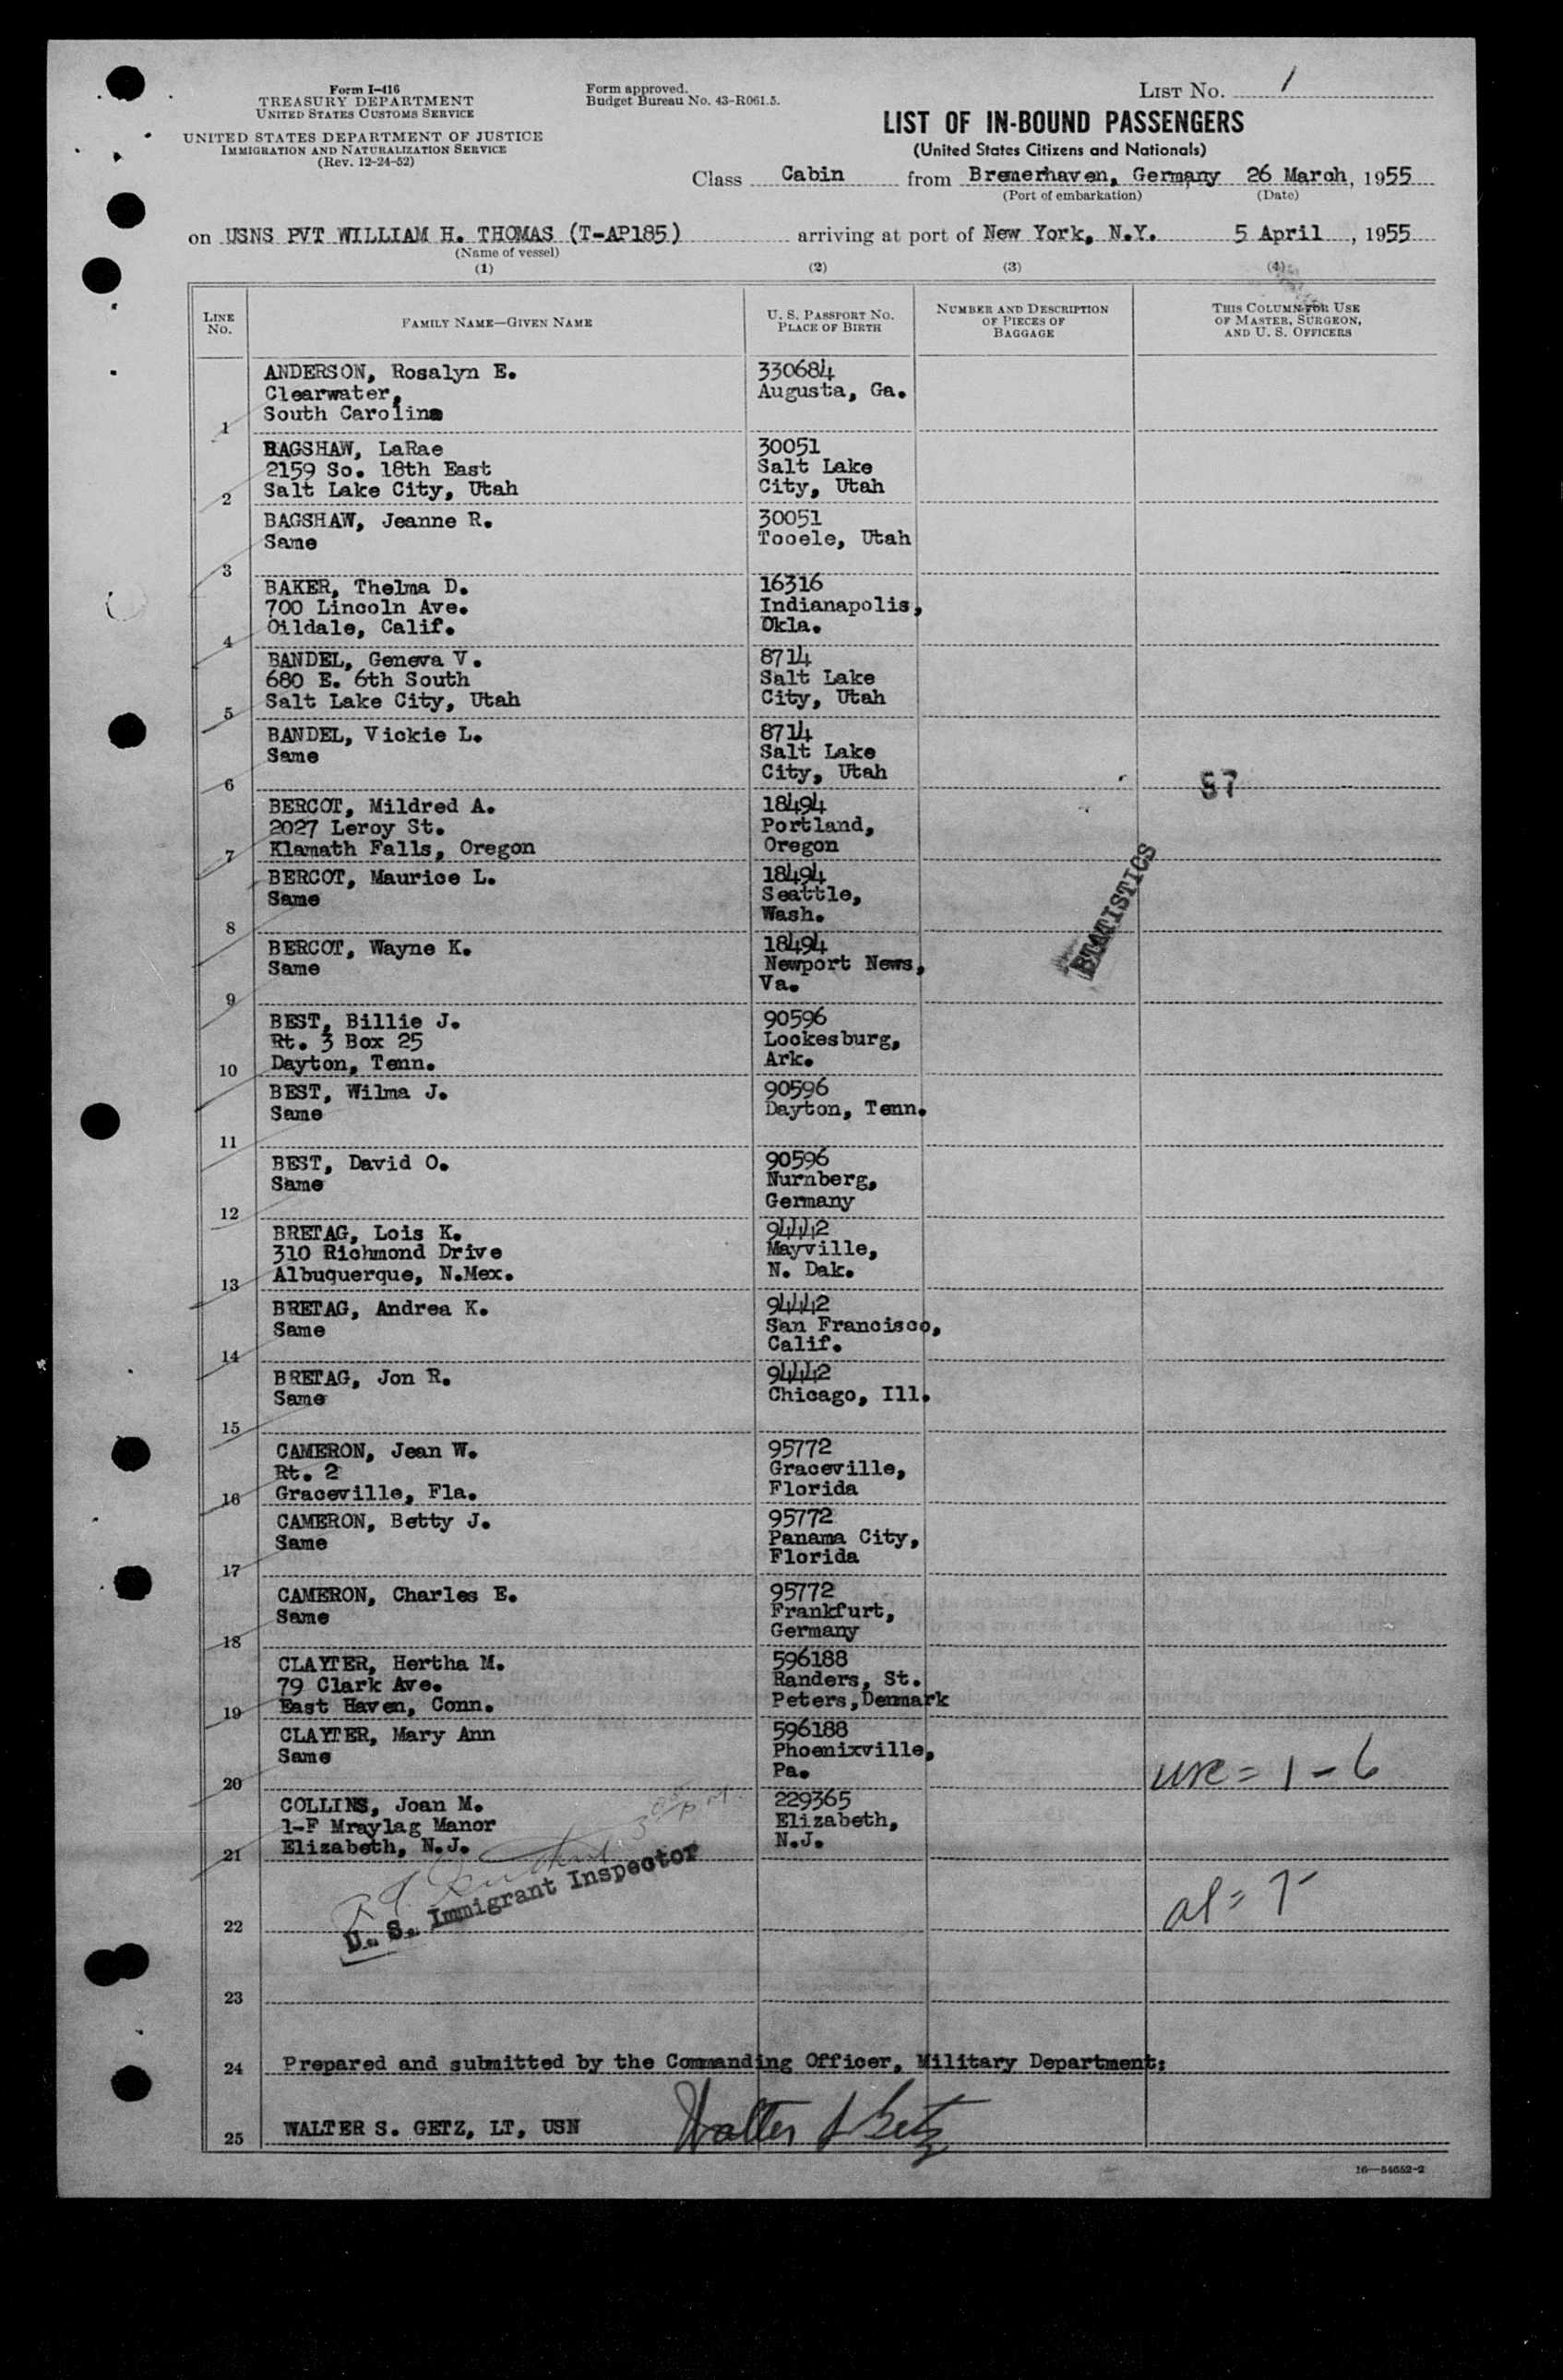 Form I-416
TREASURY DEPARTMENT
UNITED STATES CUSTOMS SERVICE
UNITED STATES DEPARTMENT OF JUSTICE
IMMIGRATION AND NATURALIZATION SERVICE
(Rev. 12-24-52)
Form approved.
Budget Bureau No. 43-R061.5.
LIST No. 1
LIST OF IN-BOUND PASSENGERS
(United States Citizens and Nationals)
Class Cabin from Bremerhaven, Germany 26 March, 1955
(Port of embarkation) (Date)
on USNS PVT WILLIAM H. THOMAS (T-AP185) arriving at port of New York, N.Y. 5 April, 1955
(Name of vessel)
(1) (2) (3) (4)
LINE No.
FAMILY NAME—GIVEN NAME
U. S. PASSPORT NO.
PLACE OF BIRTH
NUMBER AND DESCRIPTION
OF PIECES OF
BAGGAGE
THIS COLUMN FOR USE
OF MASTER, SURGEON,
AND U. S. OFFICERS
ANDERSON, Rosalyn E. 330684
Clearwater, Augusta, Ga.
South Carolina
1
BAGSHAW, LaRae 30051
2159 So. 18th East Salt Lake
2 Salt Lake City, Utah City, Utah
BAGSHAW, Jeanne R. 30051
Same Tooele, Utah
3
BAKER, Thelma D. 16316
700 Lincoln Ave. Indianapolis,
4 Oildale, Calif. Okla.
BANDEL, Geneva V. 8714
680 E. 6th South Salt Lake
5 Salt Lake City, Utah City, Utah
BANDEL, Vickie L. 8714
Same Salt Lake
City, Utah
6 57
BERCOT, Mildred A. 18494
2027 Leroy St. Portland,
7 Klamath Falls, Oregon Oregon
BERCOT, Maurice L. 18494
Same Seattle,
Wash.
8 STATISTICS
BERCOT, Wayne K. 18494
Same Newport News,
Va.
9
BEST, Billie J. 90596
Rt. 3 Box 25 Lockesburg,
10 Dayton, Tenn. Ark.
BEST, Wilma J. 90596
Same Dayton, Tenn.
11
BEST, David O. 90596
Same Nurnberg,
Germany
12
BRETAG, Lois K. 94442
310 Richmond Drive Mayville,
13 Albuquerque, N.Mex. N. Dak.
BRETAG, Andrea K. 94442
Same San Francisco,
Calif.
14
BRETAG, Jon R. 94442
Same Chicago, Ill.
15
CAMERON, Jean W. 95772
Rt. 2 Graceville,
16 Graceville, Fla. Florida
CAMERON, Betty J. 95772
Same Panama City,
Florida
17
CAMERON, Charles E. 95772
Same Frankfurt,
Germany
18
CLAYTER, Hertha M. 596188
79 Clark Ave. Randers, St.
19 East Haven, Conn. Peters,Denmark
CLAYTER, Mary Ann 596188
Same Phoenixville,
Pa.
20 usc = 1-6
COLLINS, Joan M. 229365
1-F Mraylag Manor Elizabeth,
21 Elizabeth, N.J. N.J.
U. S. Immigrant Inspector
22 al =
23
24 Prepared and submitted by the Commanding Officer, Military Department:
25 WALTER S. GETZ, LT, USN Walter S Getz
16—54652-2